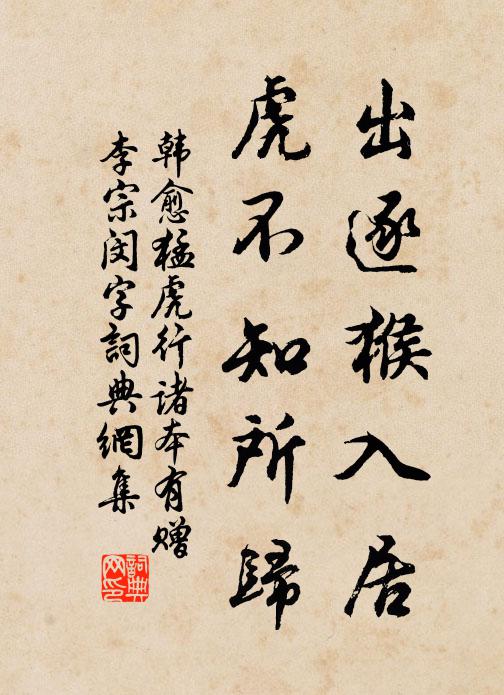 出逐猴入居
虎不知所歸
韩愈猛虎行诸本有赠
李宗闵字詞典網集
詞典
网印